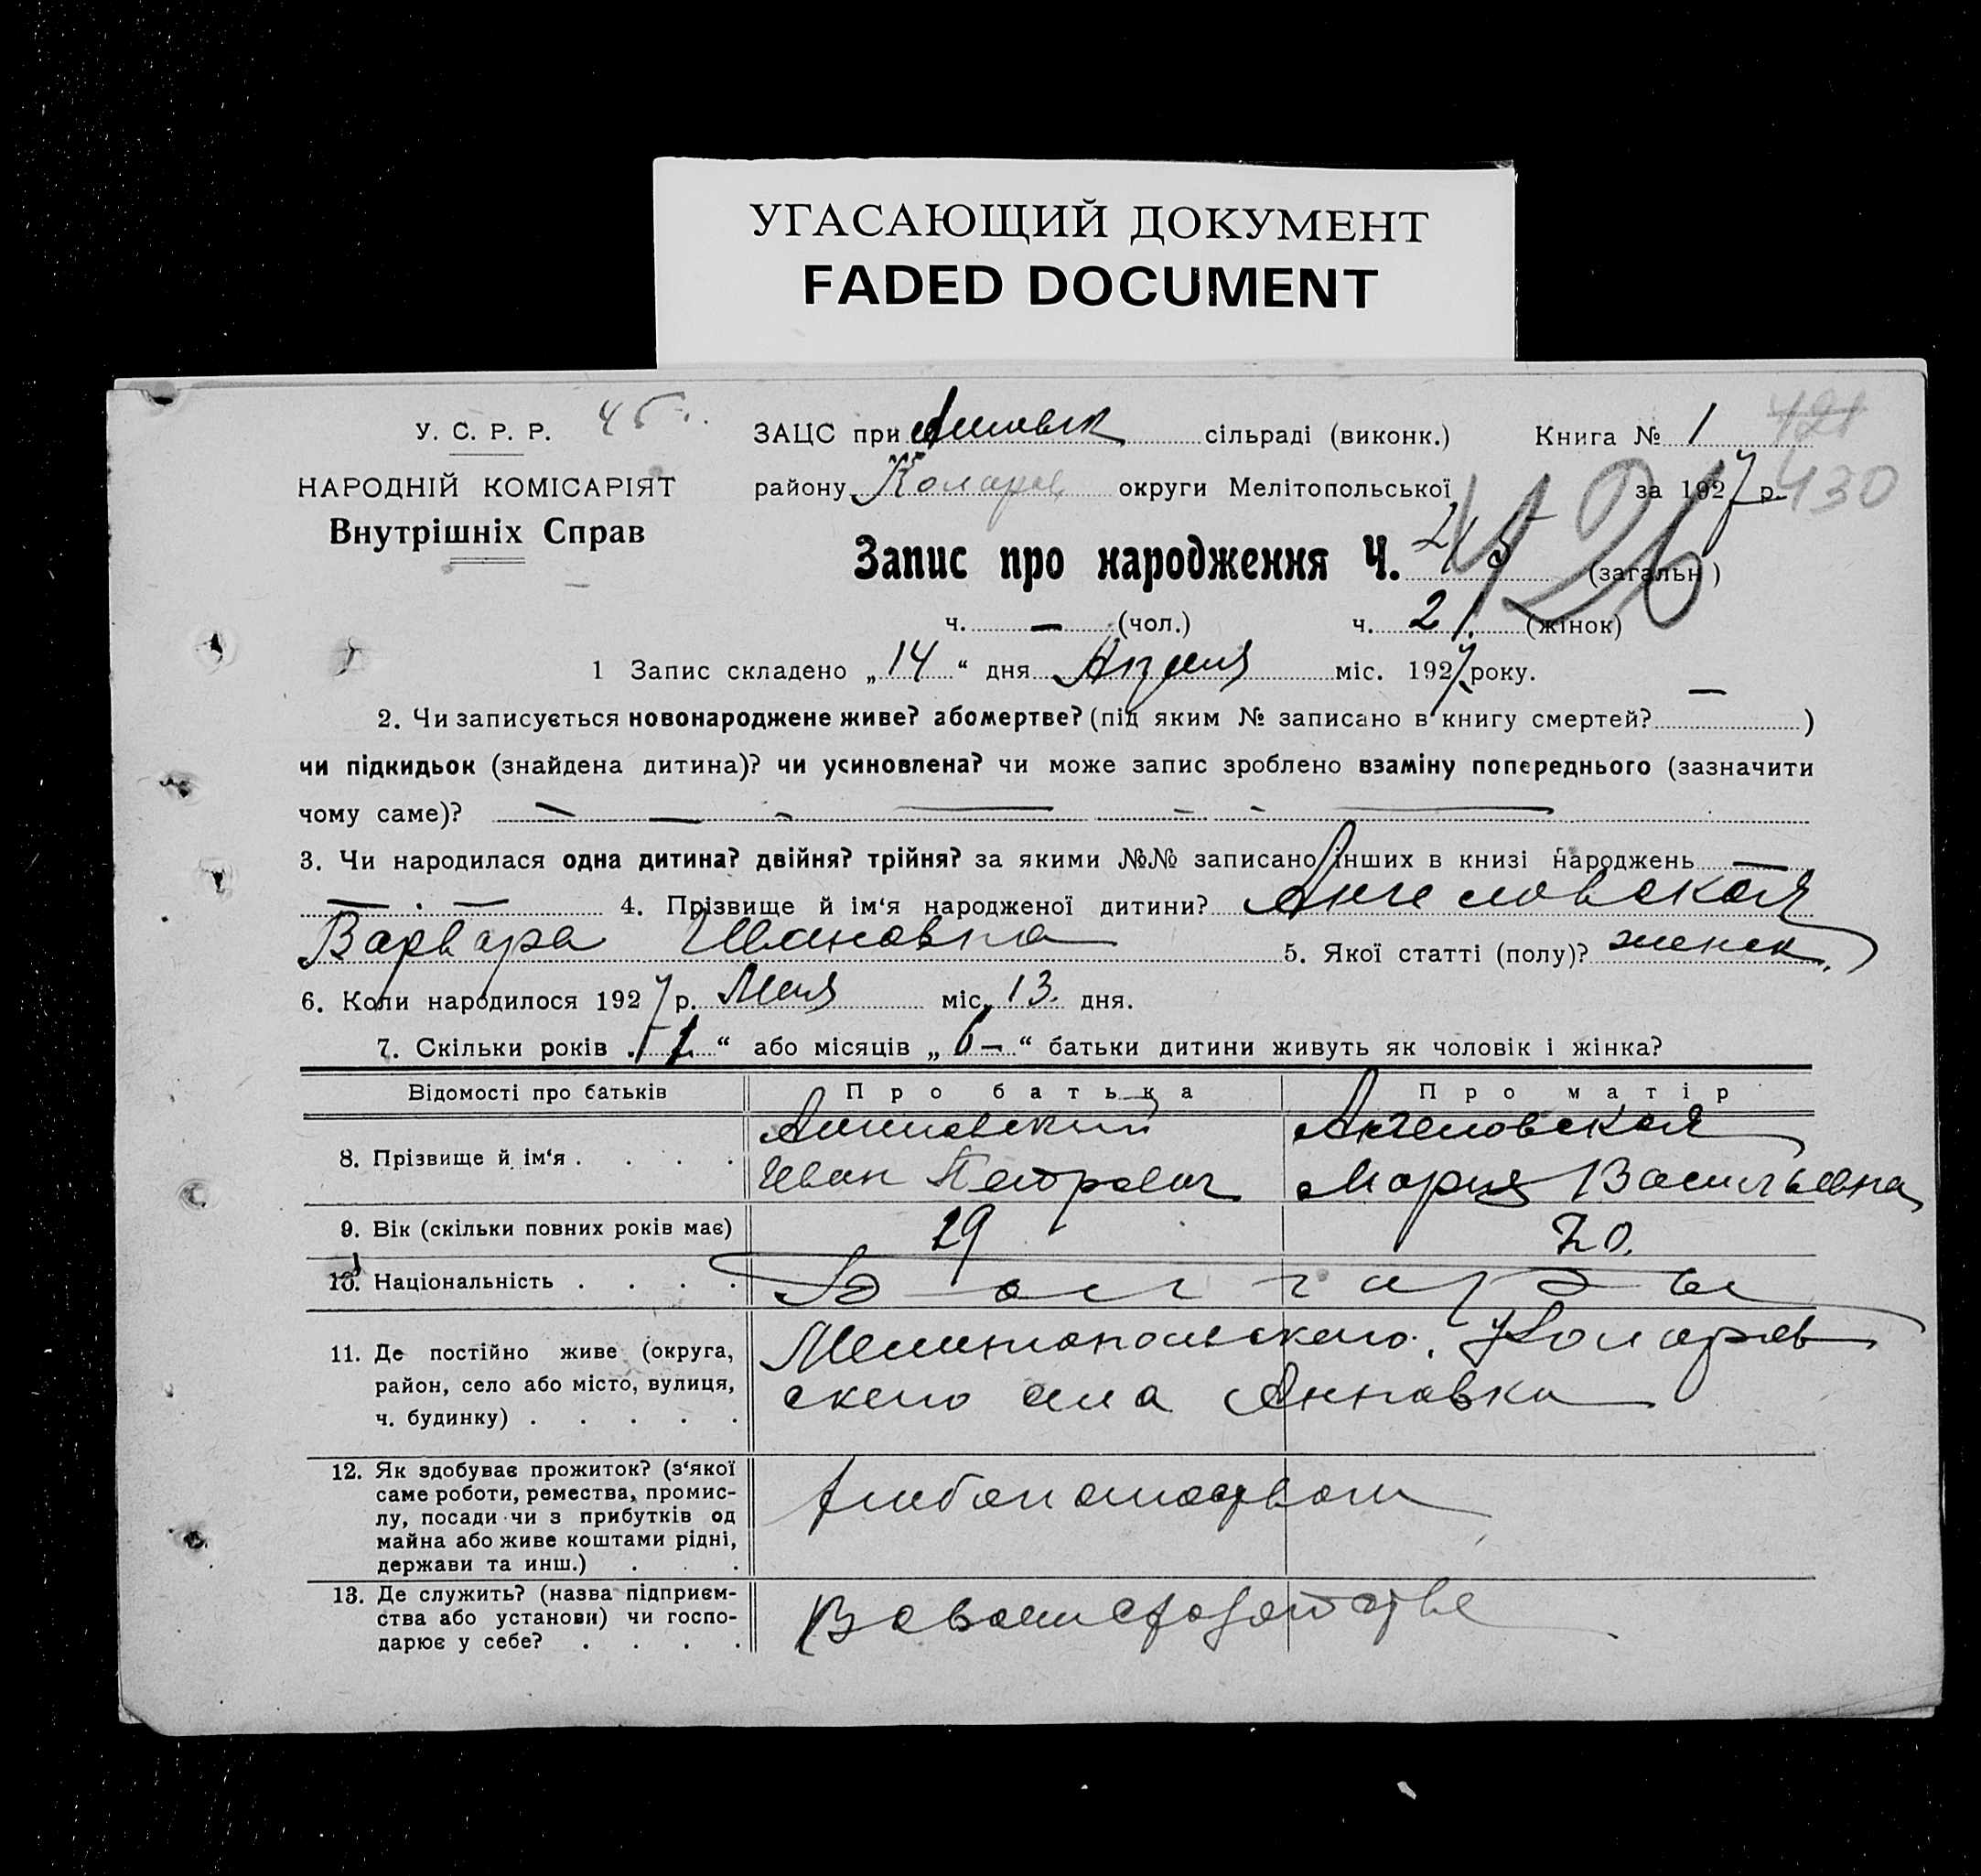 УГАСАЮЩИЙ ДОКУМЕНТ
FADED DOCUMENT
У. С. Р. Р. 45
ЗАЦС при сільраді (виконк.) Книга № 1 421
НАРОДНІЙ КОМІСАРІЯТ
району Коларов округи Мелітопольської за 1927 р. 430
Внутрішніх Справ
Запис про народження Ч. 45 (загальн) 426
ч. — (чол.) ч. 21. (жінок)
1 Запис складено „14“ дня Апреля міс. 1927 року.
2. Чи записується новонароджене живе? або мертве? (під яким № записано в книгу смертей? — )
чи підкидьок (знайдена дитина)? чи усиновлена? чи може запис зроблено взаміну попереднього (зазначити
чому саме)? — — — — — — —
3. Чи народилася одна дитина? двійня? трійня? за якими №№ записано інших в книзі народжень —
— — 4. Прізвище й ім‘я народженої дитини? Ангеловская
Варвара Ивановна 5. Якої статті (полу)? женск.
6. Коли народилося 1927 р. Мая міс. 13. дня.
7. Скільки років „1“ або місяців „6—“ батьки дитини живуть як чоловік і жінка?
Відомості про батьків Про батька Про матір
8. Прізвище й ім‘я . . . . Ангеловская
Иван Петрович Мария Васильевна
9. Вік (скільки повних років має) 29 20.
10. Національність . . . . Болгары
11. Де постійно живе (округа, район, село або місто, вулиця, ч. будинку) . . . . . Мелитопольского. Коларов
ского села Анновка
12. Як здобуває прожиток? (з‘якої
саме роботи, ремества, промис-
лу, посади чи з прибутків од
майна або живе коштами рідні,
держави та инш.) . . .
хлебопашеством
13. Де служить? (назва підприєм-
ства або установи) чи госпо-
дарює у себе? . . . .
В своем хозяйстве